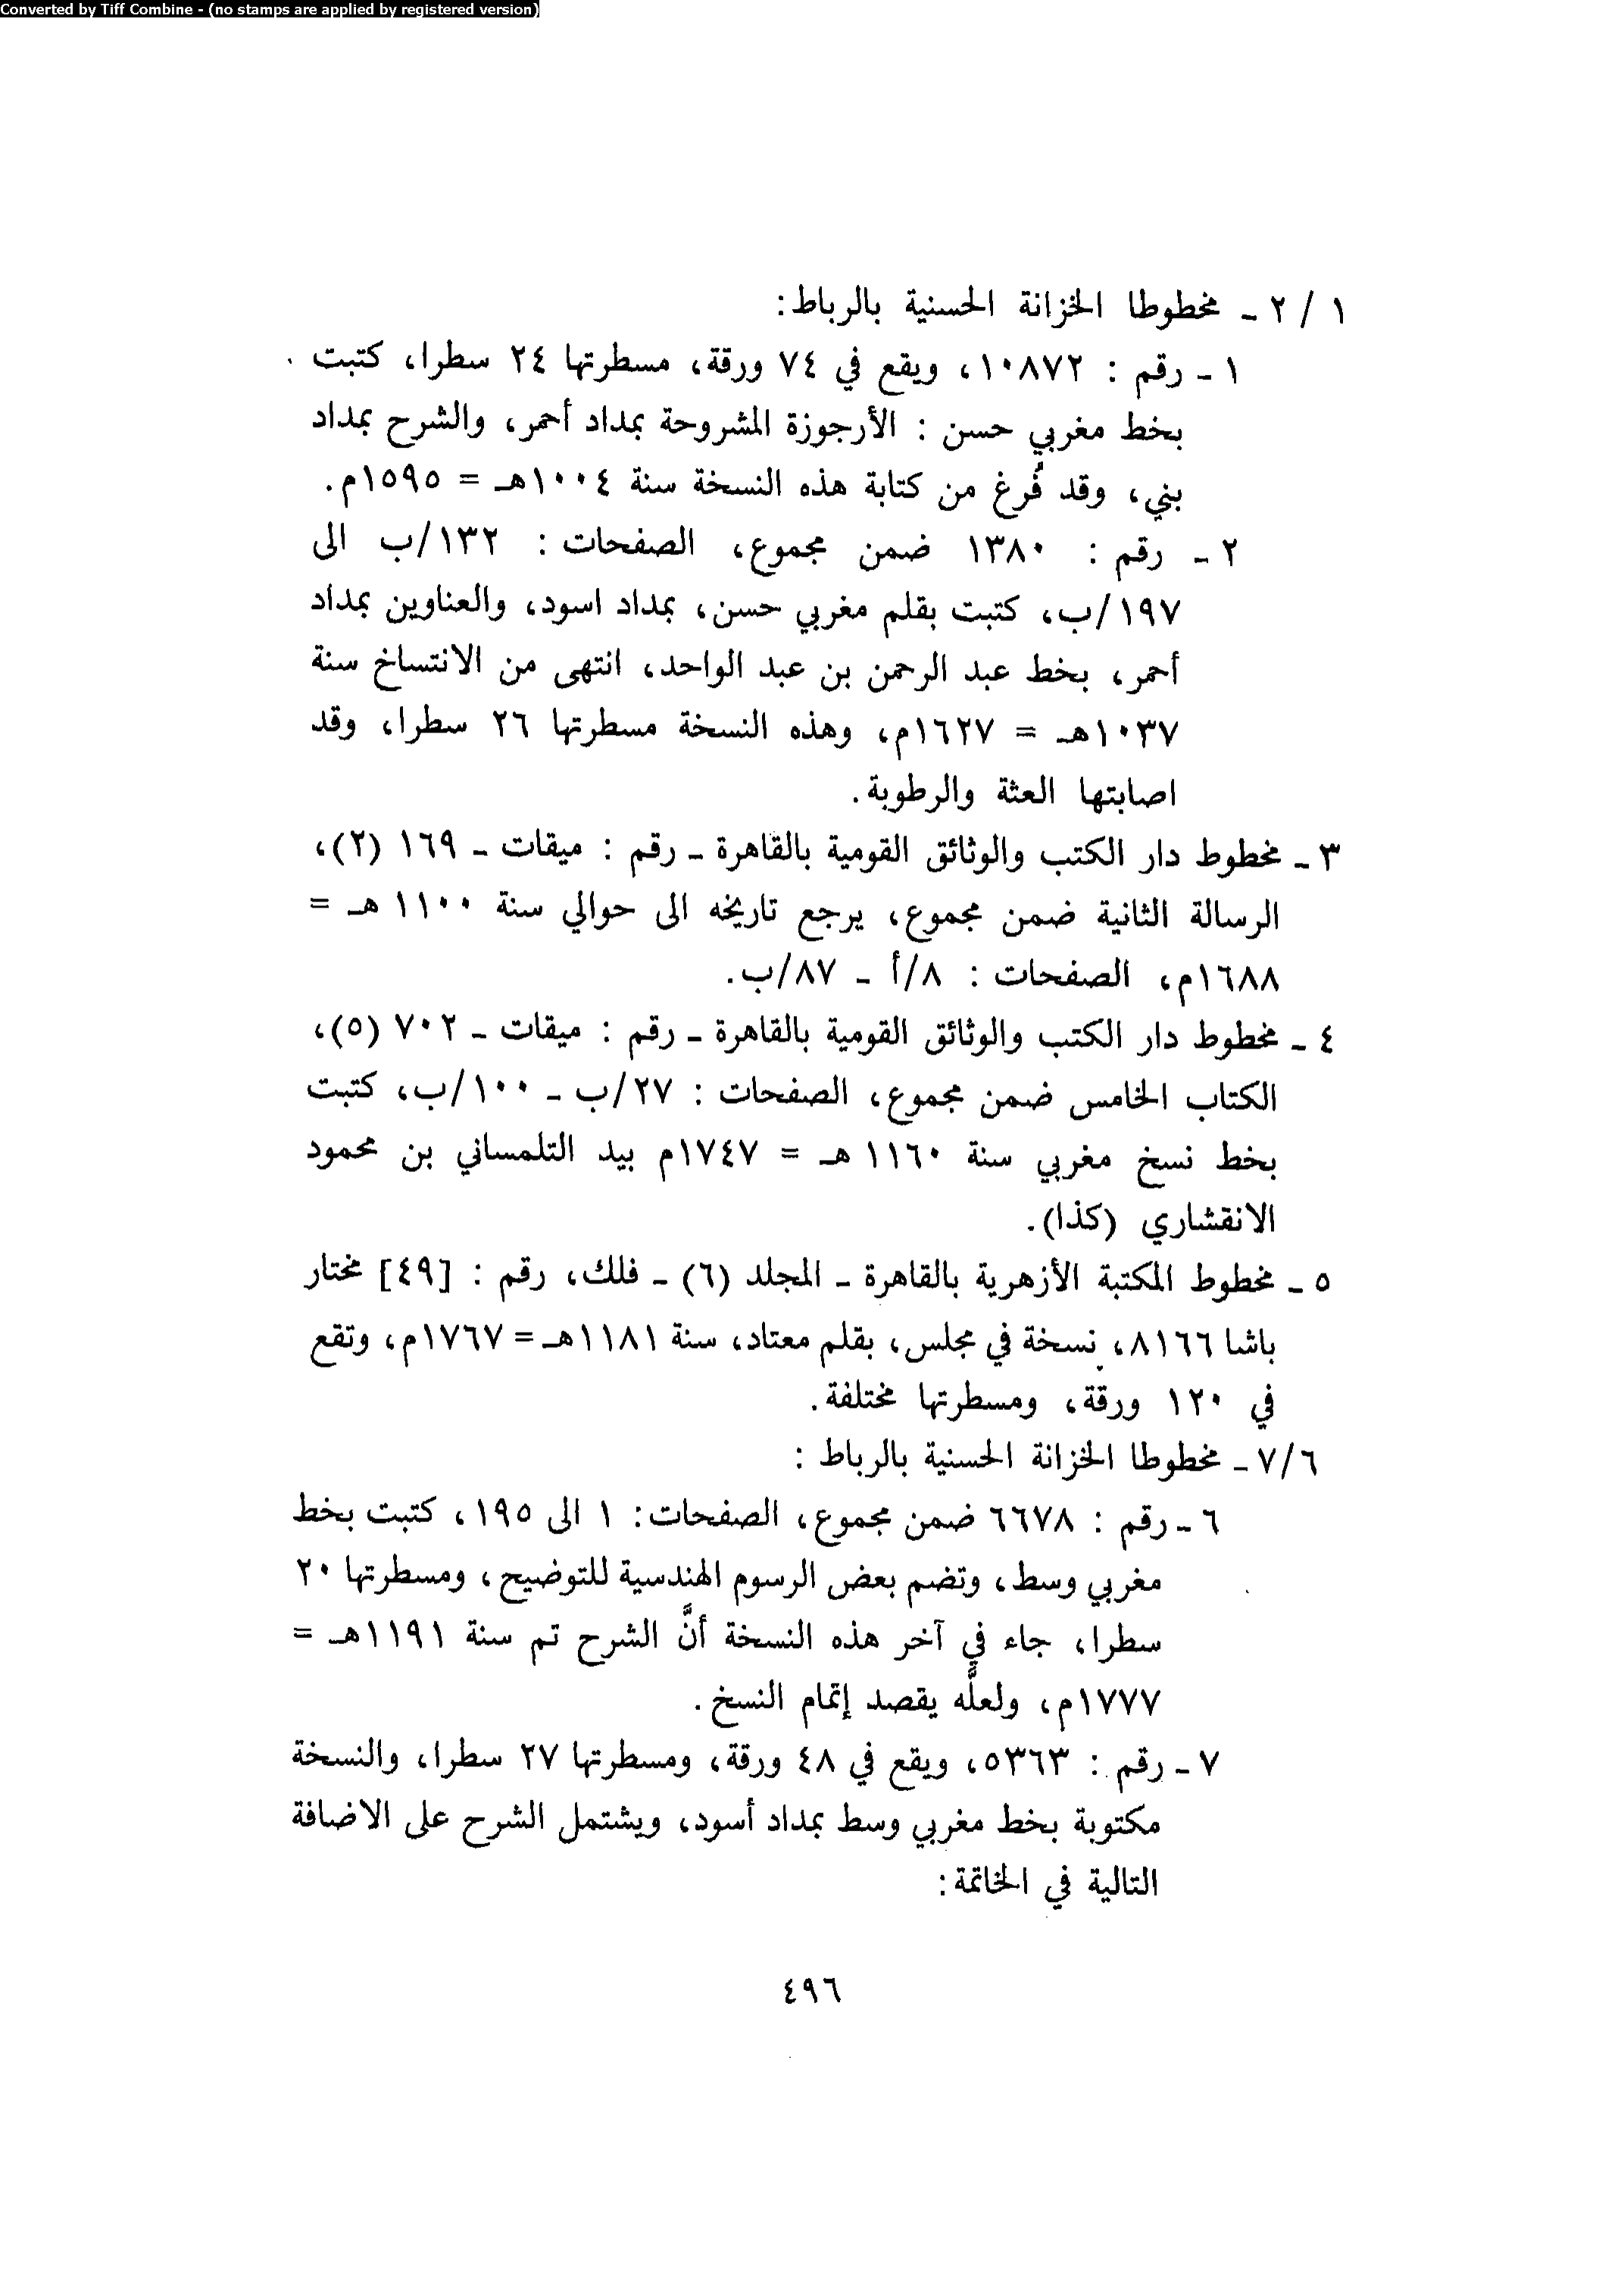 Converted by Tiff Combine - (no stamps are applied by registered version)
١ / ٢ - مخطوطا الخزانة الحسنية بالرباط:
١ - رقم : ١٠٨٧٢، ويقع في ٧٤ ورقة، مسطرتها ٢٤ سطرا، كتبت
بخط مغربي حسن : الأرجوزة المشروحة بمداد أحمر، والشرح بمداد
بني، وقد فُرغ من كتابة هذه النسخة سنة ١٠٠٤هـ = ١٥٩٥م.
٢ - رقم : ١٣٨٠ ضمن مجموع، الصفحات : ١٣٢/ب الى
١٩٧/ب، كتبت بقلم مغربي حسن، بمداد اسود، والعناوين بمداد
أحمر، بخط عبد الرحمن بن عبد الواحد، انتهى من الانتساخ سنة
١٠٣٧هـ = ١٦٢٧م، وهذه النسخة مسطرتها ٢٦ سطرا، وقد
اصابتها العثة والرطوبة.
٣ - مخطوط دار الكتب والوثائق القومية بالقاهرة - رقم : ميقات - ١٦٩ (٢)،
الرسالة الثانية ضمن مجموع، يرجع تاريخه الى حوالي سنة ١١٠٠ هـ =
١٦٨٨م، الصفحات : ٨/أ - ٨٧/ب.
٤ - مخطوط دار الكتب والوثائق القومية بالقاهرة - رقم : ميقات - ٧٠٢ (٥)،
الكتاب الخامس ضمن مجموع، الصفحات : ٢٧/ب - ١٠٠/ب، كتبت
بخط نسخ مغربي سنة ١١٦٠ هـ = ١٧٤٧م بيد التلمساني بن محمود
الانقشاري (كذا).
٥ - مخطوط المكتبة الأزهرية بالقاهرة - المجلد (٦) - فلك، رقم : [٤٩] مختار
باشا ٨١٦٦، نسخة في مجلس، بقلم معتاد، سنة ١١٨١هـ = ١٧٦٧م، وتقع
في ١٢٠ ورقة، ومسطرتها مختلفة.
٧/٦ - مخطوطا الخزانة الحسنية بالرباط :
٦ - رقم : ٦٦٧٨ ضمن مجموع، الصفحات: ١ الى ١٩٥، كتبت بخط
مغربي وسط، وتضم بعض الرسوم الهندسية للتوضيح، ومسطرتها ٢٠
سطرا، جاء في آخر هذه النسخة أنَّ الشرح تم سنة ١١٩١هـ =
١٧٧٧م، ولعلَّه يقصد إتمام النسخ.
٧ - رقم : ٥٣٦٣، ويقع في ٤٨ ورقة، ومسطرتها ٢٧ سطرا، والنسخة
مكتوبة بخط مغربي وسط بمداد أسود، ويشتمل الشرح على الاضافة
التالية في الخاتمة:
٤٩٦